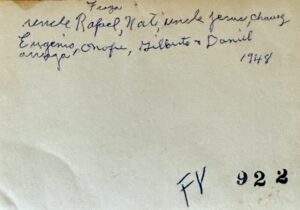 Freza
uncle Rafael, Nati, uncle Jesus, Chavez
Eugenio, Onofre, Gilberto + Daniel
1948
FV 922